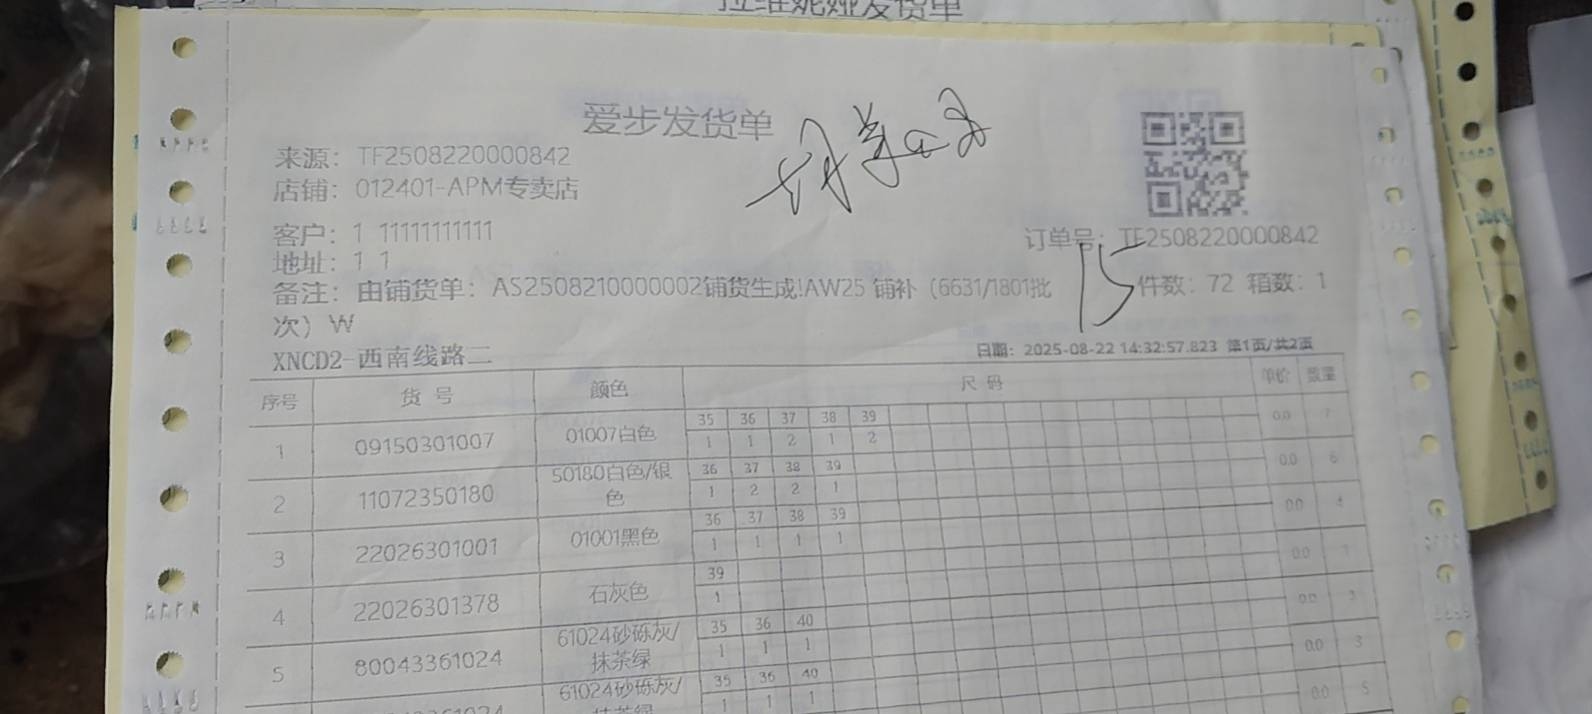 拉维妮娅发货单
爱步发货单
来源：TF2508220000842
店铺：012401-APM专卖店
客户：1 11111111111
订单号：TF2508220000842
地址：1 1
15
备注：由铺货单：AS2508210000002铺货生成!AW25 铺补（6631/1801批
件数：72 箱数：1
次）W
XNCD2-西南线路二
日期：2025-08-22 14:32:57.823 第1页/共2页
序号 货号 颜色 尺码 单价 数量
35 36 37 38 39
1 09150301007 01007白色 1 1 2 1 2 0.0 7
36 37 38 39
2 11072350180 50180白色/银色 1 2 2 1 0.0 6
36 37 38 39
3 22026301001 01001黑色 1 1 1 1 0.0 4
39
4 22026301378 石灰色 1 0.0 1
35 36 40
5 80043361024 61024砂砾灰/抹茶绿 1 1 1 0.0 3
35 36 40
61024砂砾灰/抹茶绿 1 1 1 0.0 3
0.0 5